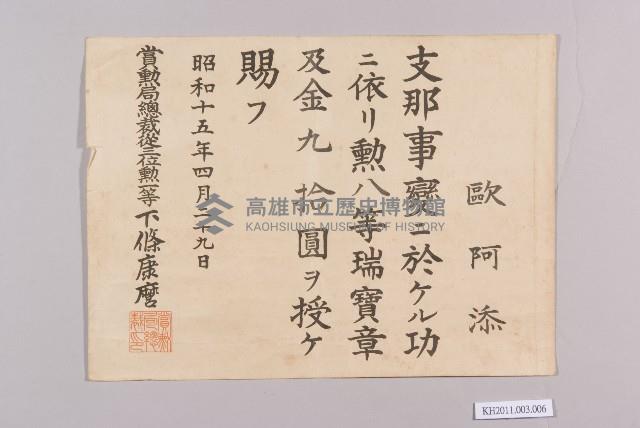 歐阿添
支那事變ニ於ケル功
ニ依リ勲八等瑞寶章
及金九拾圓ヲ授ケ
賜フ
昭和十五年四月二十九日
賞勲局總裁從三位勲一等下條康麿
賞勲局總裁印
高雄市立歷史博物館
KAOHSIUNG MUSEUM OF HISTORY
KH2011.003.006